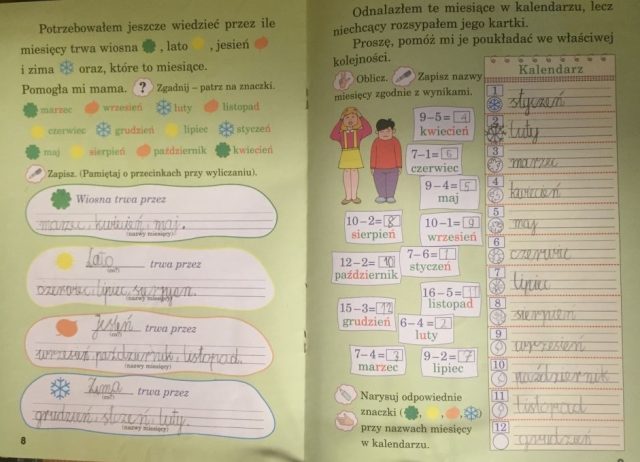 Potrzebowałem jeszcze wiedzieć przez ile
miesięcy trwa wiosna , lato , jesień
i zima oraz, które to miesiące.
Pomogła mi mama. ? Zgadnij – patrz na znaczki.
marzec wrzesień luty listopad
czerwiec grudzień lipiec styczeń
maj sierpień październik kwiecień
Zapisz. (Pamiętaj o przecinkach przy wyliczaniu).
Wiosna trwa przez
marzec, kwiecień, maj.
(nazwy miesięcy)
Lato trwa przez
(co?)
czerwiec, lipiec, sierpień.
(nazwy miesięcy)
Jesień trwa przez
(co?)
wrzesień, październik, listopad.
(nazwy miesięcy)
Zima trwa przez
(co?)
grudzień, luty.
(nazwy miesięcy)
8
Odnalazłem te miesiące w kalendarzu, lecz
niechcący rozsypałem jego kartki.
Proszę, pomóż mi je poukładać we właściwej
kolejności.
Oblicz. Zapisz nazwy
miesięcy zgodnie z wynikami.
9–5= 4
kwiecień
7–1= 6
czerwiec
9–4= 5
maj
10–2= 8
sierpień
10–1= 9
wrzesień
12–2= 10
październik
7–6= 1
styczeń
16–5= 11
listopad
15–3= 12
grudzień
6–4= 2
luty
7–4= 3
marzec
9–2= 7
lipiec
Narysuj odpowiednie
znaczki ( , , , )
przy nazwach miesięcy
w kalendarzu.
Kalendarz
1 styczeń
2 luty
3 marzec
4 kwiecień
5 maj
6 czerwiec
7 lipiec
8 sierpień
9 wrzesień
10 październik
11 listopad
12 grudzień